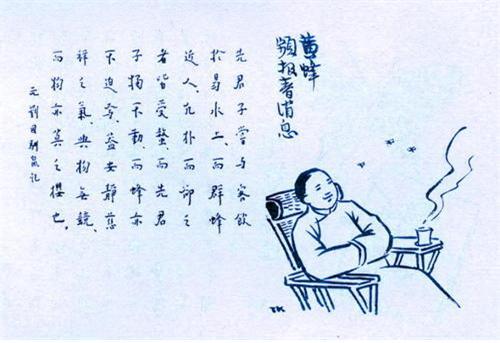 黄蜂
頻报著消息
先君子嘗与客飲
於易水上、而群蜂
近人、凡扑而卻之
者皆受螫、而先君
子獨不動、而蜂亦
不迫焉、蓋安靜慈
祥之氣、與物無競、
而物亦莫之攖也。
元劉因馴鼠記
TK